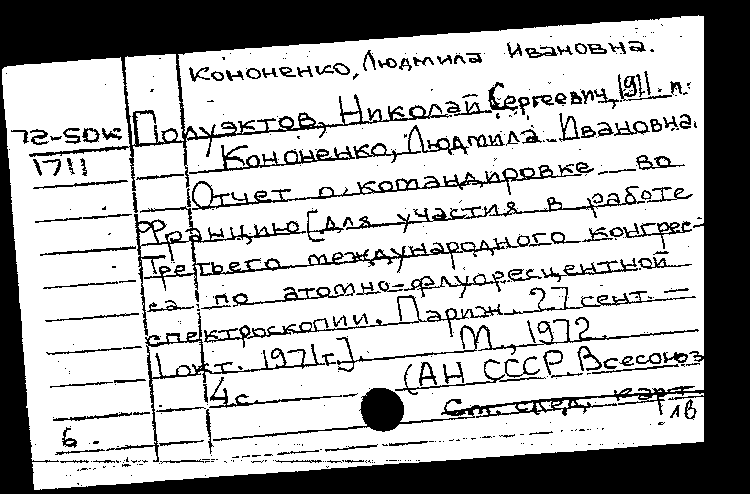 Кононенко, Людмила Ивановна.
72-50к Полуэктов, Николай Сергеевич, 1911. п.
1711 Кононенко, Людмила Ивановна.
Отчет о командировке во
Францию [для участия в работе
Третьего международного конгрес-
са по атомно-флуоресцентной
спектроскопии. Париж. 27 сент. —
1 окт. 1971г.]. М., 1972.
4с. (АН СССР. Всесоюз
См. след. карт.
6. 1б